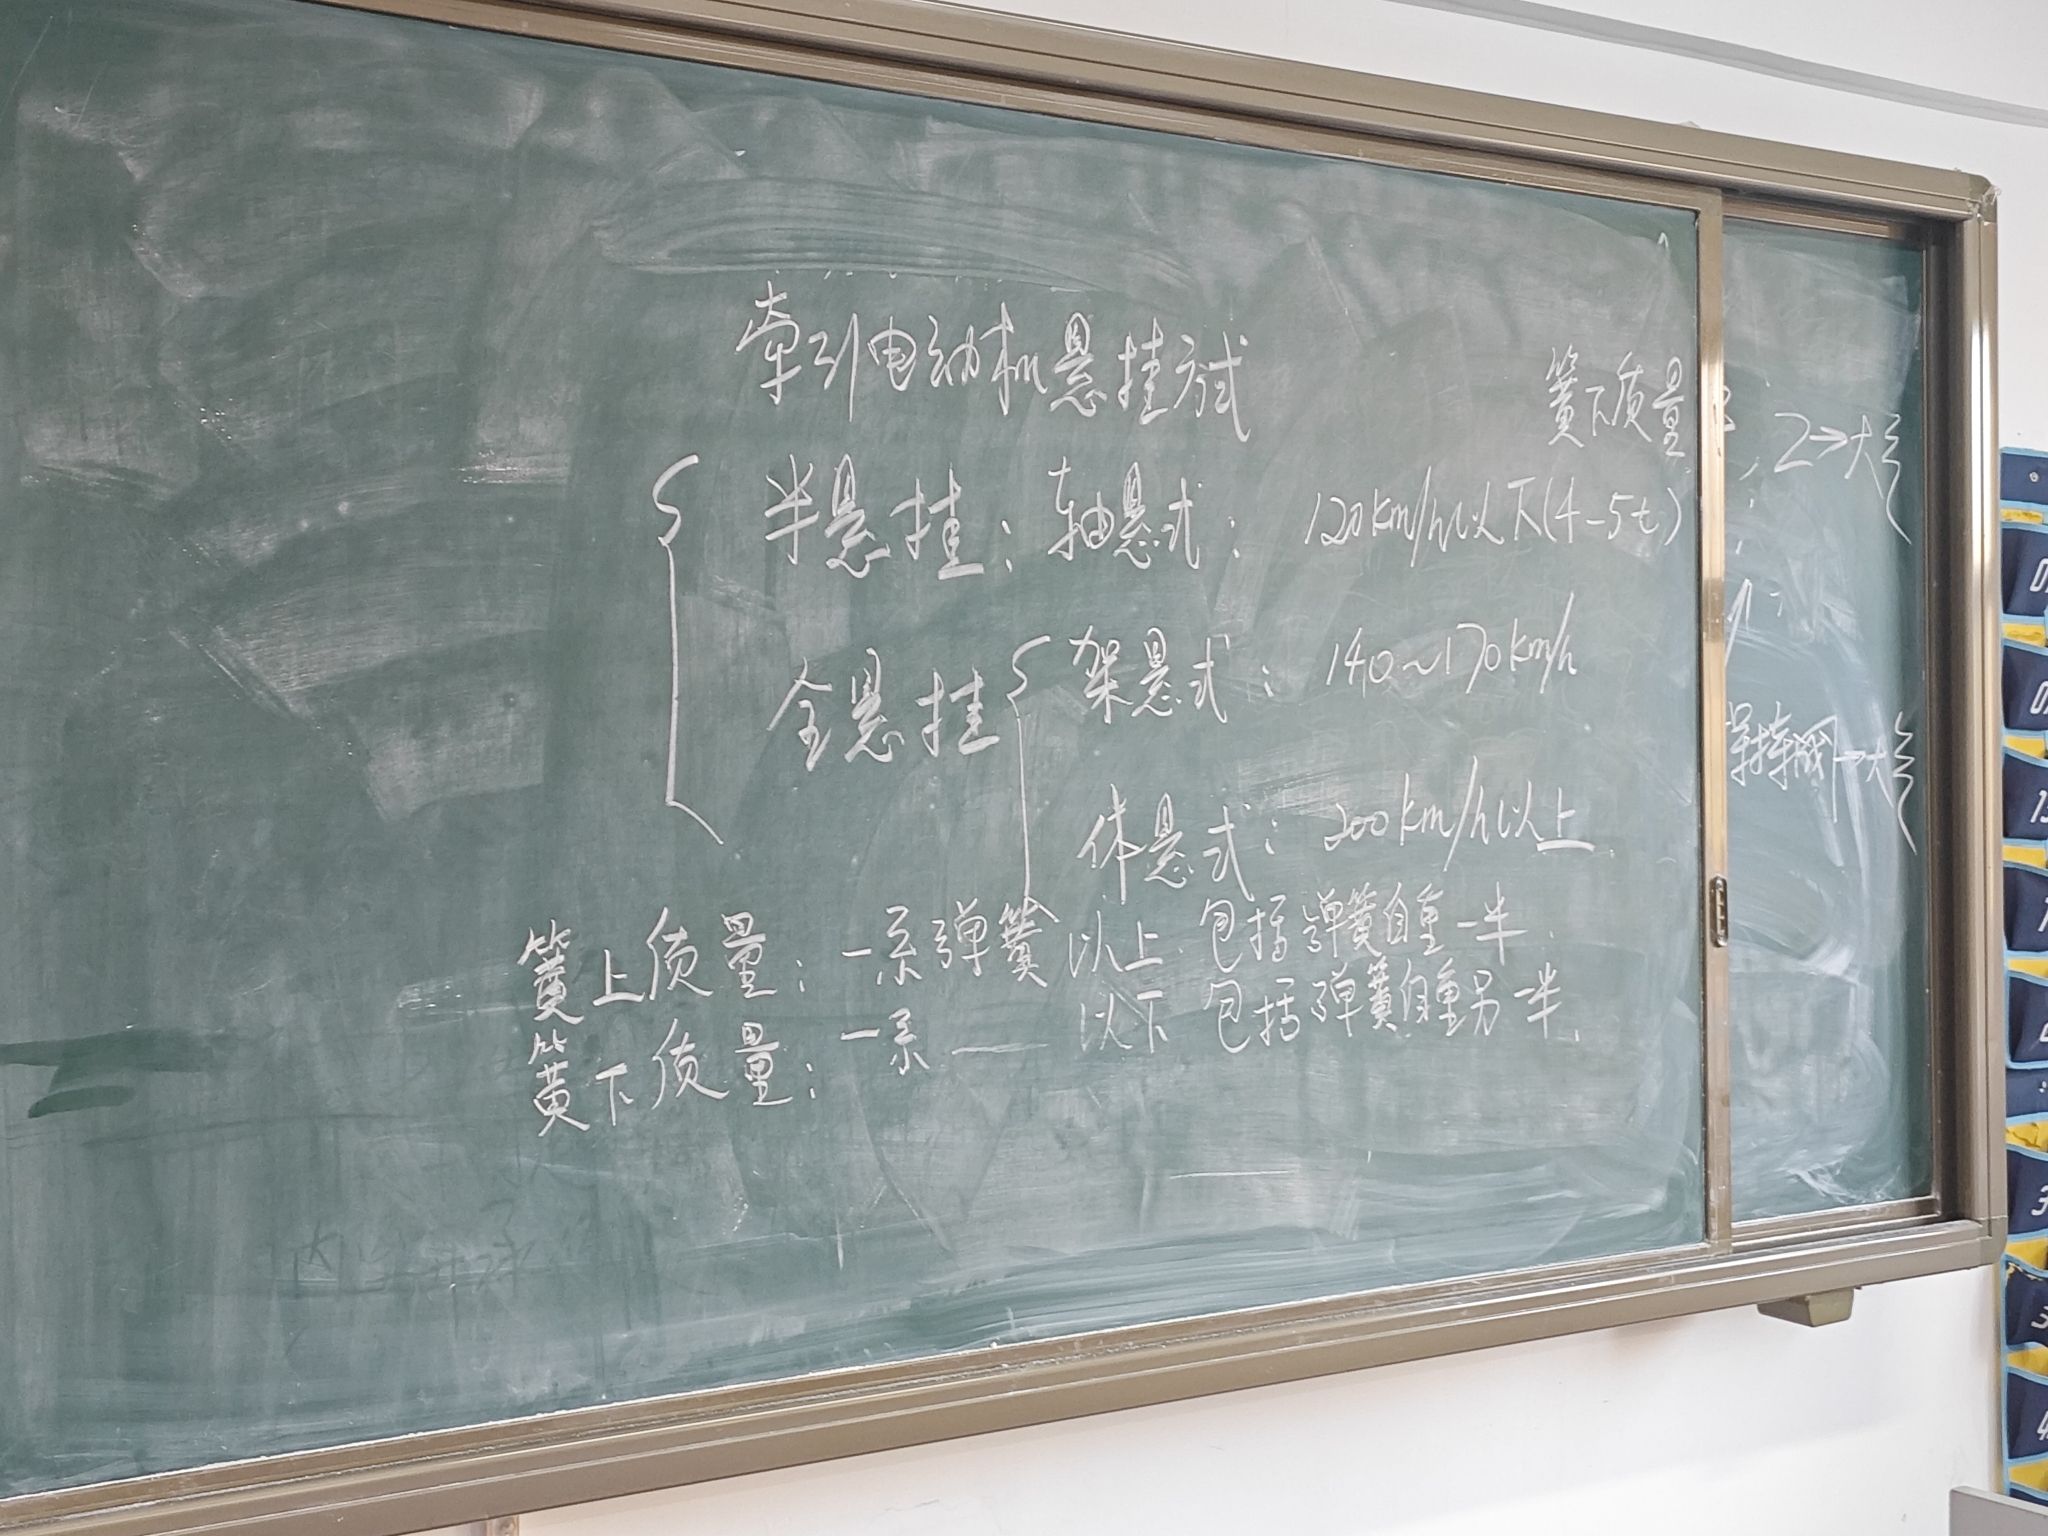 牵引电动机悬挂方式
簧下质量
半悬挂：轴悬式：120km/h以下(4-5t)
全悬挂 架悬式：140~170km/h
体悬式：200km/h以上
簧上质量：一系弹簧以上 包括弹簧自重一半.
簧下质量：一系 —— 以下 包括弹簧自重另一半.
Z→大气
阀→大气